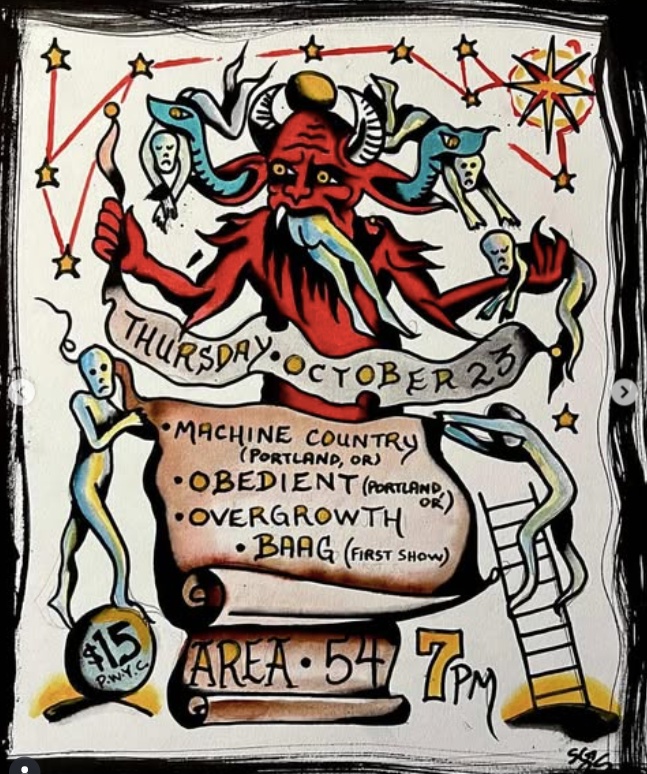 THURSDAY • OCTOBER 23
• MACHINE COUNTRY
(PORTLAND, OR)
• OBEDIENT (PORTLAND, OR)
• OVERGROWTH
• BAAG (FIRST SHOW)
$15
P.W.Y.C.
AREA • 54
7PM